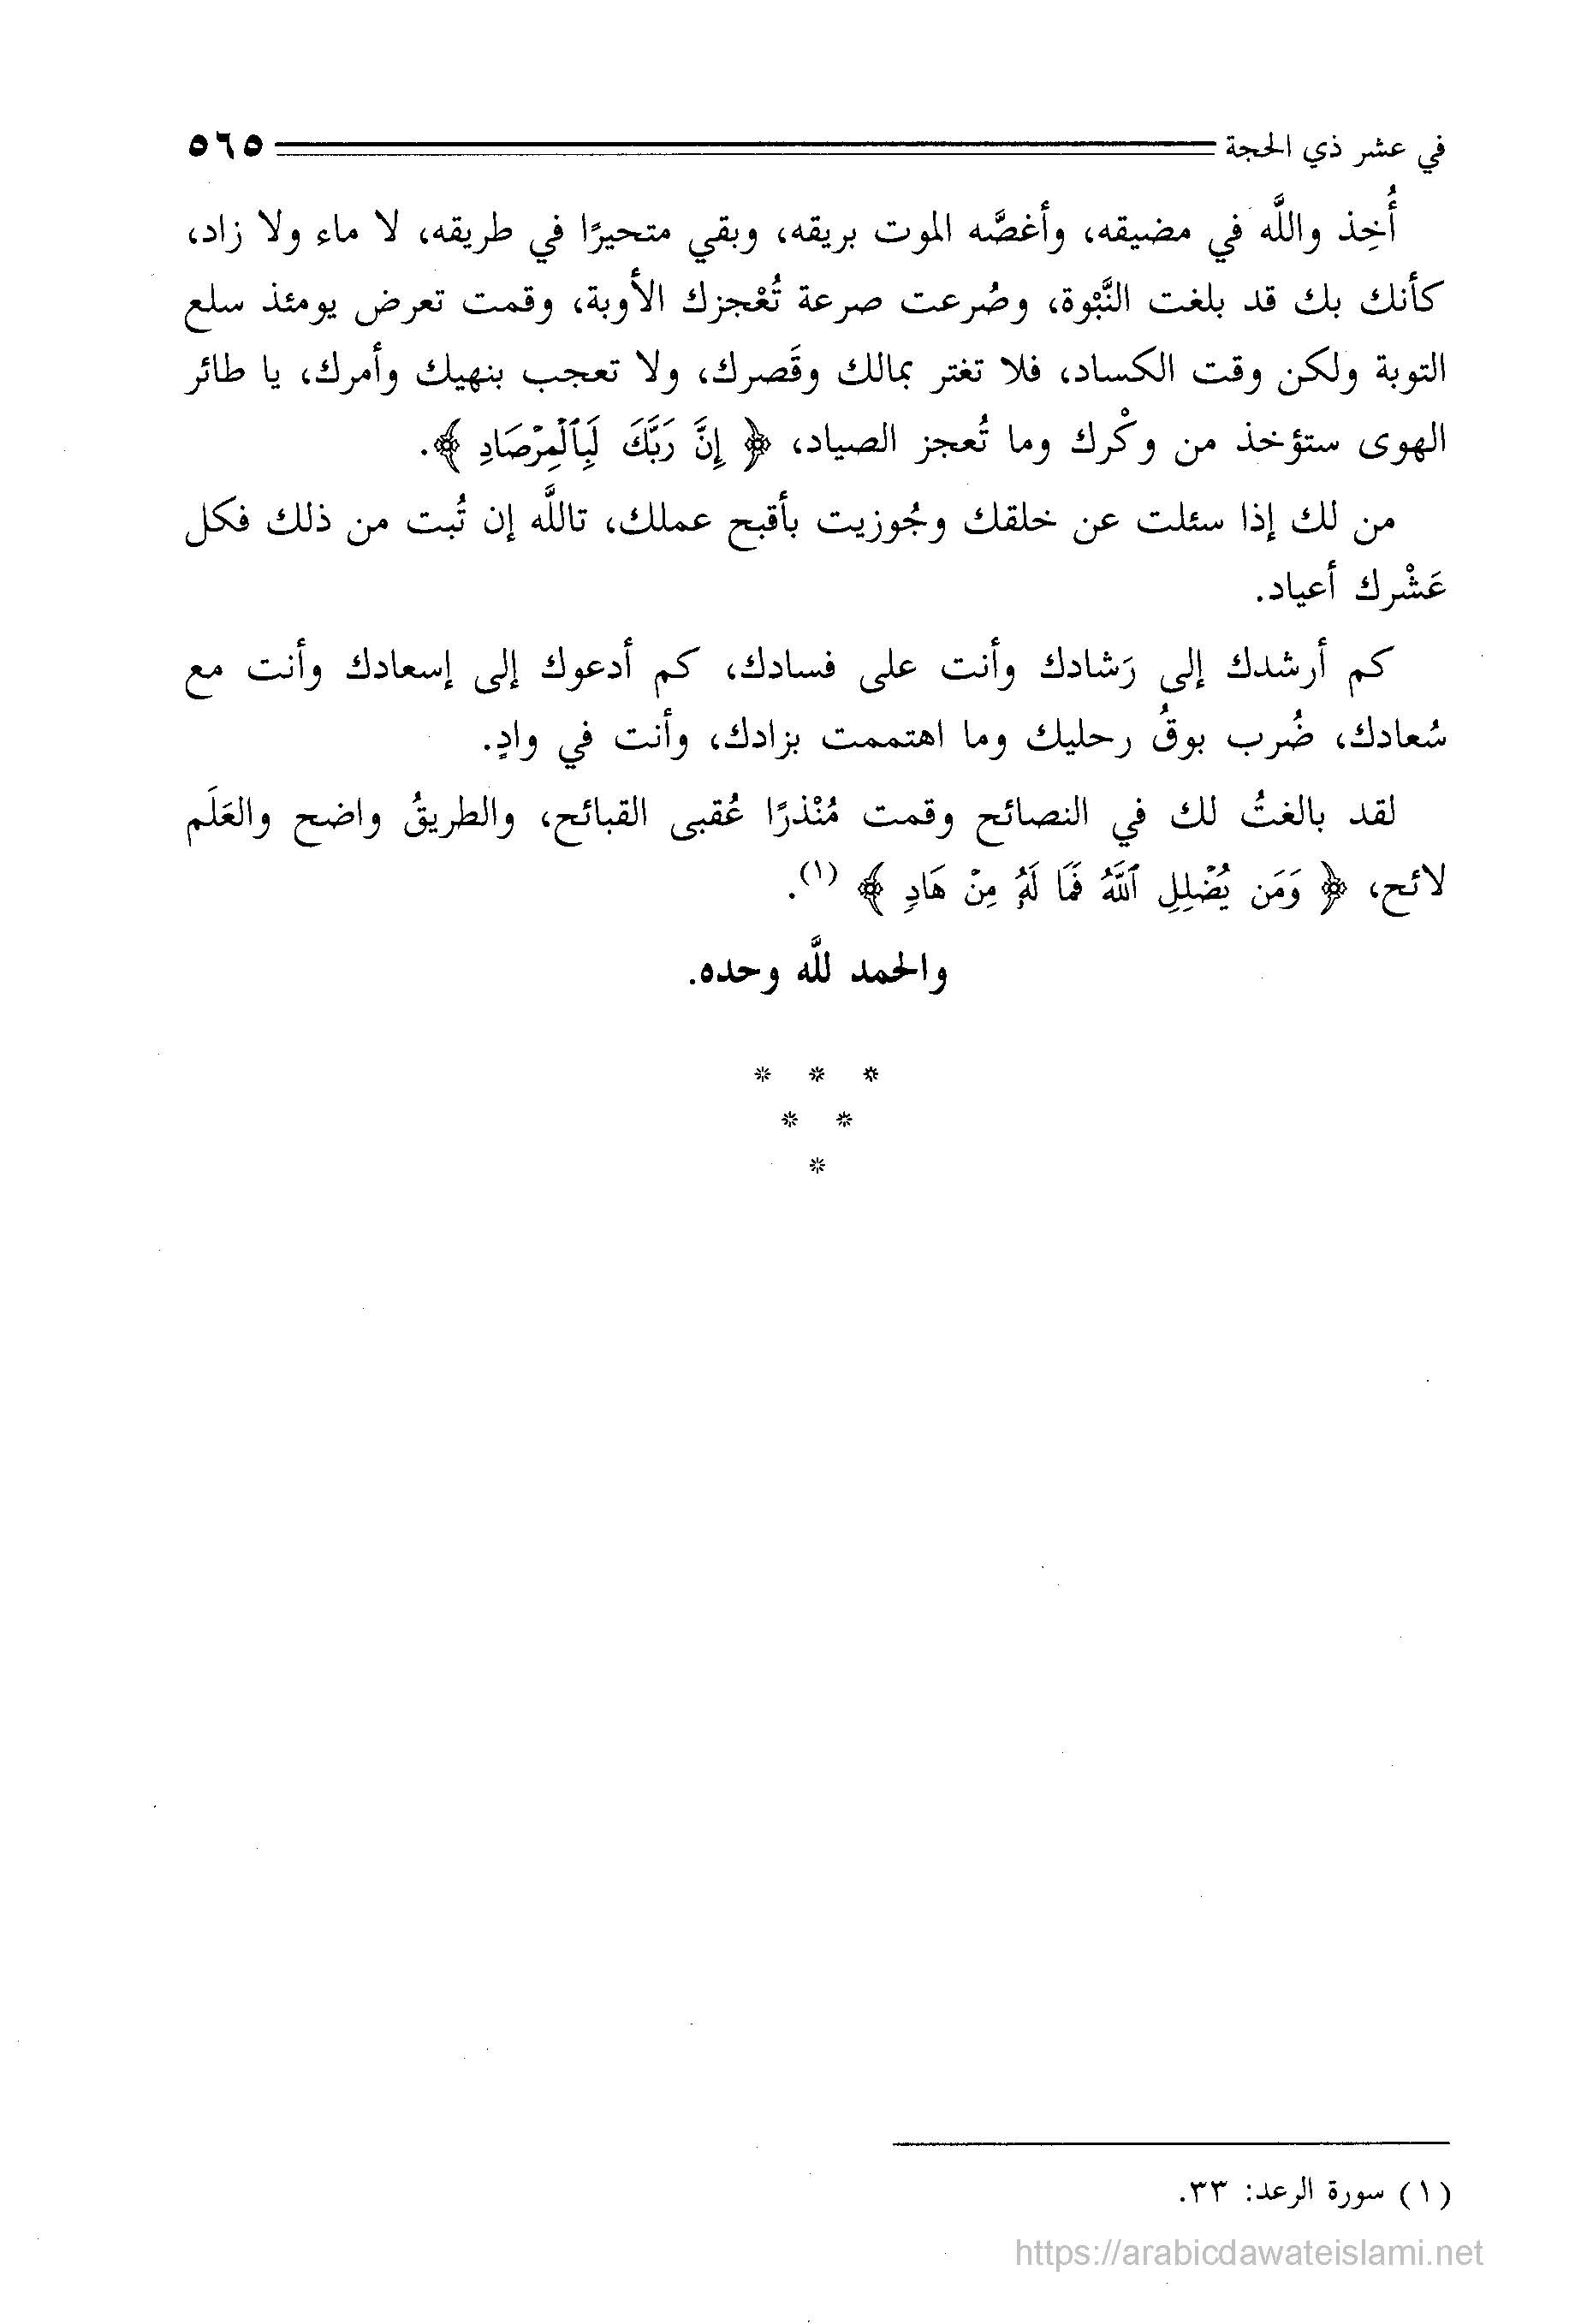 في عشر ذي الحجة ٥٦٥
أُخِذ واللَّه في مضيقه، وأغصَّه الموت بريقه، وبقي متحيرًا في طريقه، لا ماء ولا زاد،
كأنك بك قد بلغت النَّبْوة، وصُرعت صرعة تُعْجزك الأوبة، وقمت تعرض يومئذ سلع
التوبة ولكن وقت الكساد، فلا تغتر بمالك وقَصرك، ولا تعجب بنهيك وأمرك، يا طائر
الهوى ستؤخذ من وكْرك وما تُعجز الصياد، ﴿ إِنَّ رَبَّكَ لَبِٱلۡمِرۡصَادِ ﴾.
من لك إذا سئلت عن خلقك وجُوزيت بأقبح عملك، تاللَّه إن تُبت من ذلك فكل
عَشْرك أعياد.
كم أرشدك إلى رَشادك وأنت على فسادك، كم أدعوك إلى إسعادك وأنت مع
سُعادك، ضُرب بوقُ رحليك وما اهتممت بزادك، وأنت في وادٍ.
لقد بالغتُ لك في النصائح وقمت مُنْذرًا عُقبى القبائح، والطريقُ واضح والعَلَم
لائح، ﴿ وَمَن يُضۡلِلِ ٱللَّهُ فَمَا لَهُۥ مِنۡ هَادٖ ﴾ (١).
والحمد للَّه وحده.
* * *
* *
*
(١) سورة الرعد: ٣٣.
https://arabicdawateislami.net